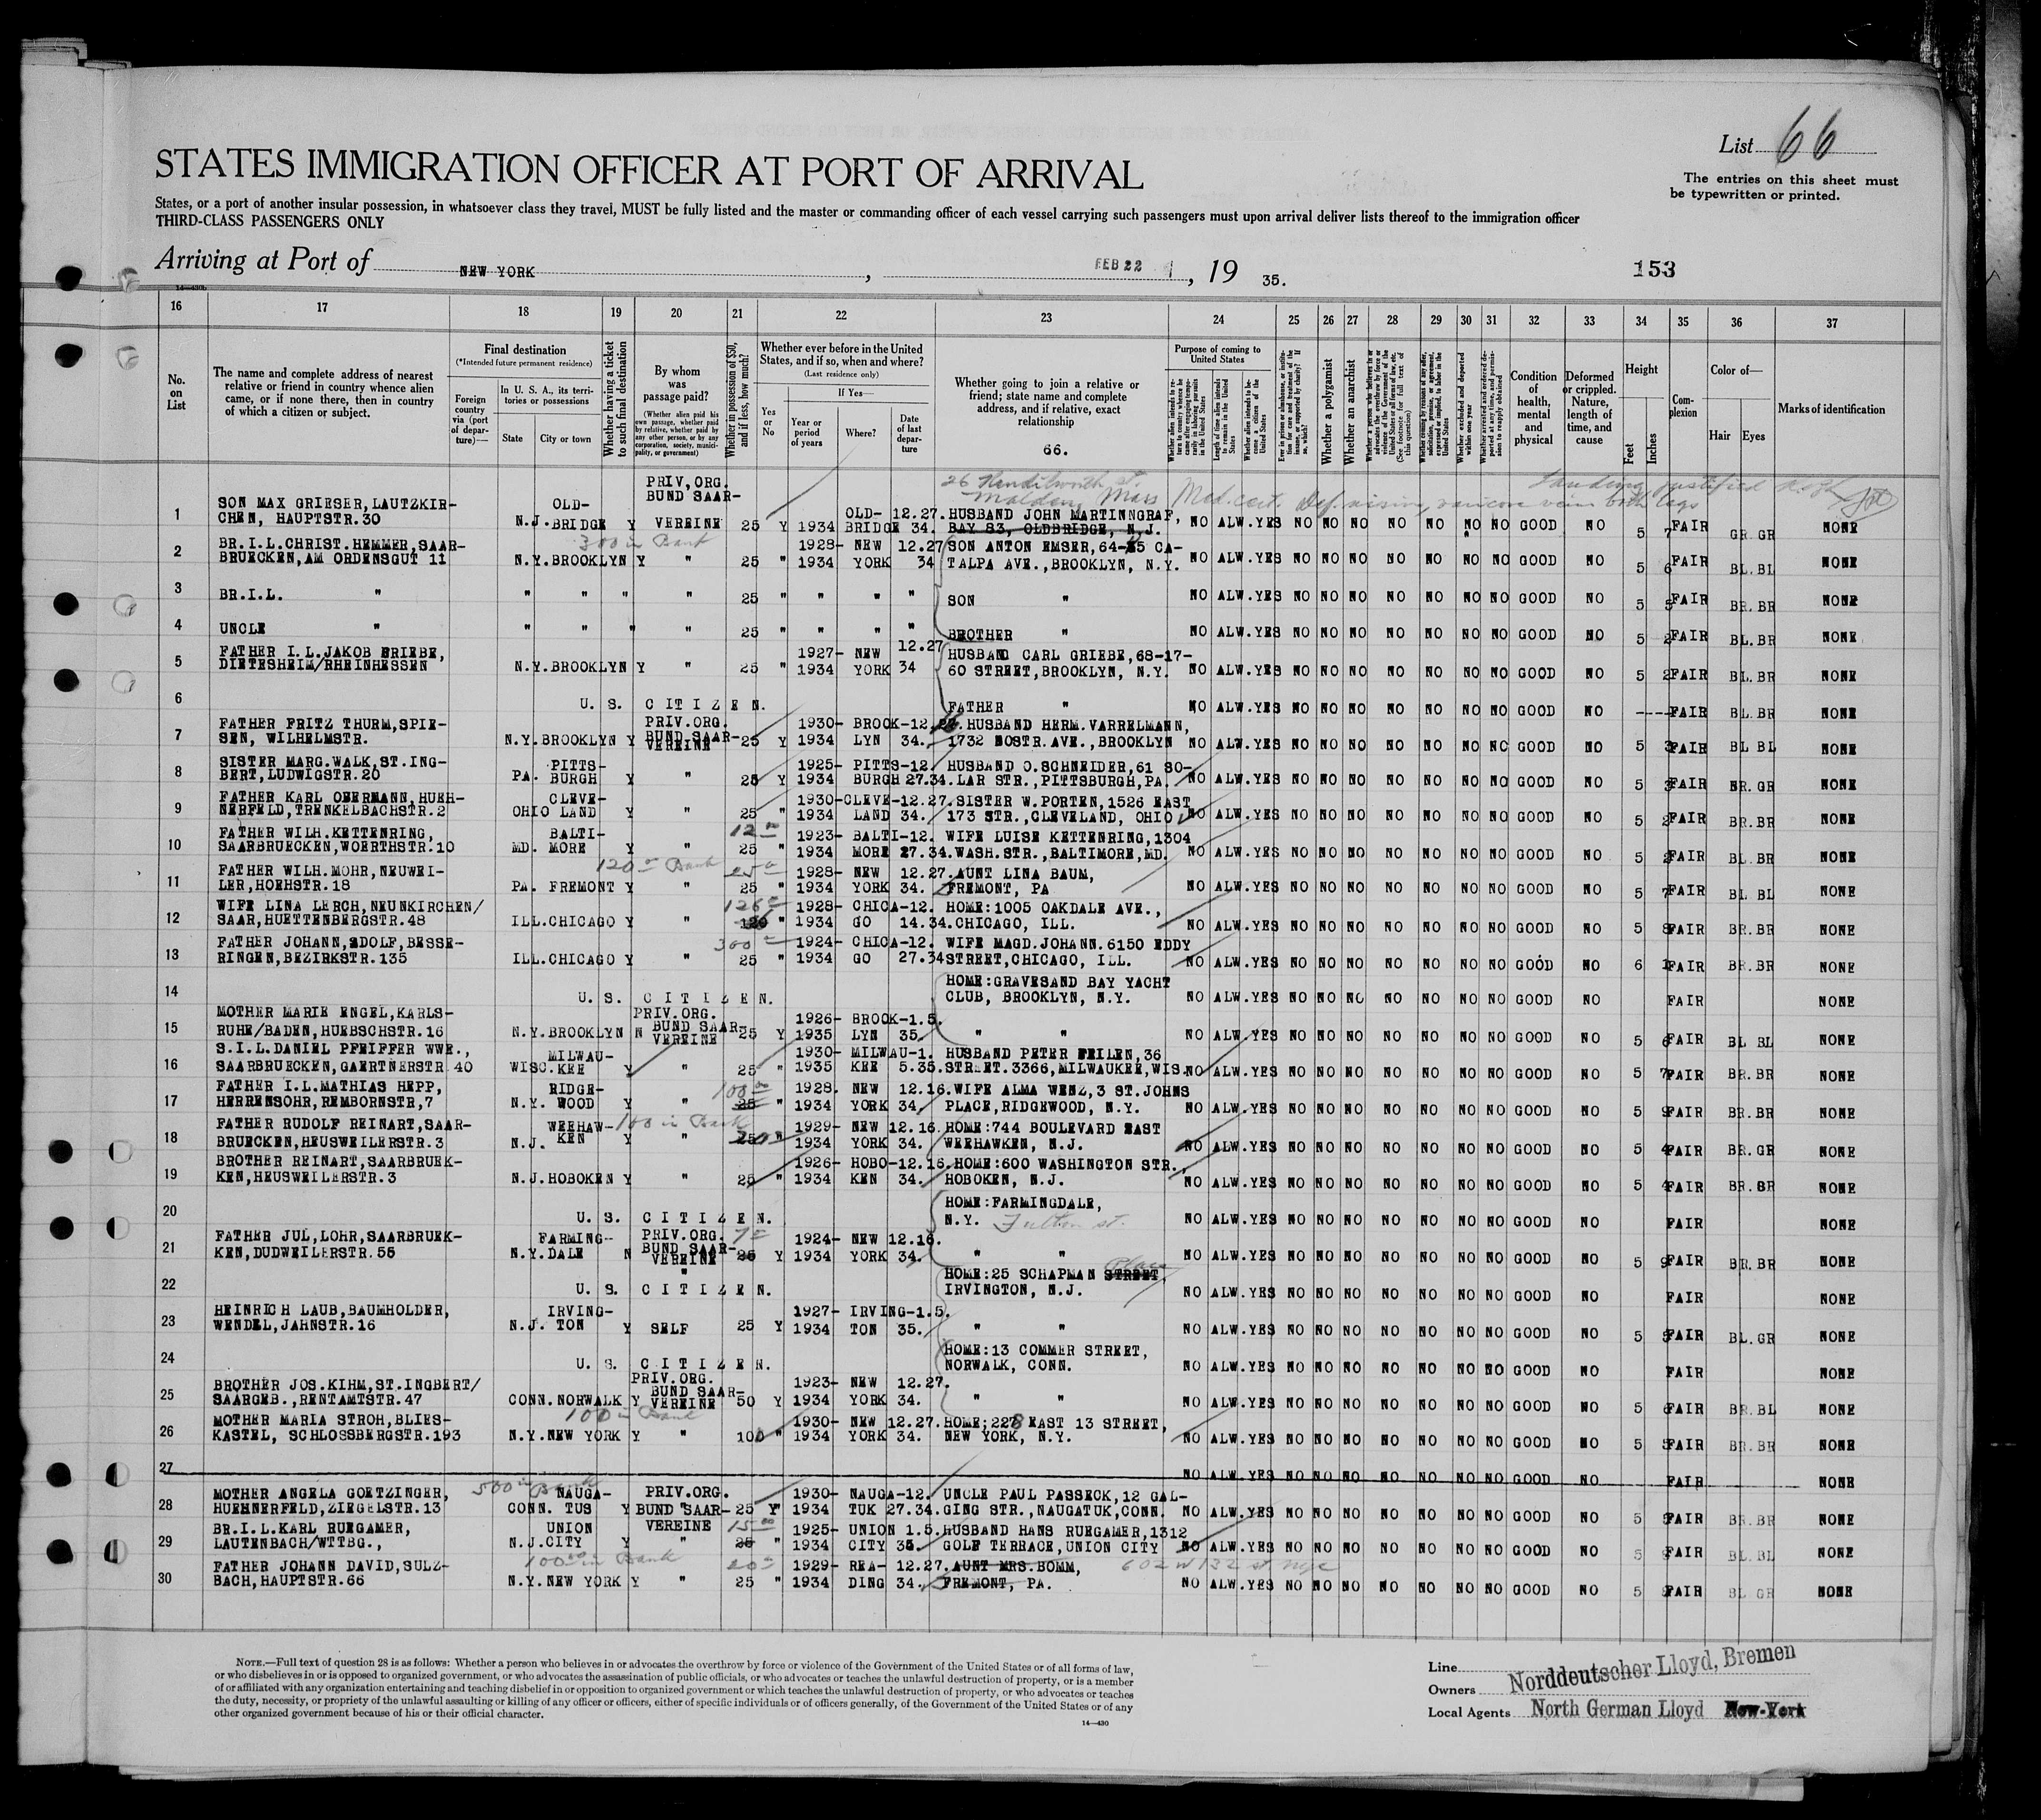 List 66
The entries on this sheet must
be typewritten or printed.
STATES IMMIGRATION OFFICER AT PORT OF ARRIVAL
States, or a port of another insular possession, in whatsoever class they travel, MUST be fully listed and the master or commanding officer of each vessel carrying such passengers must upon arrival deliver lists thereof to the immigration officer
THIRD-CLASS PASSENGERS ONLY
Arriving at Port of NEW YORK, FEB 22, 19 35.
153
14—430b
16 17 18 19 20 21 22 23 24 25 26 27 28 29 30 31 32 33 34 35 36 37
No. on List
The name and complete address of nearest relative or friend in country whence alien came, or if none there, then in country of which a citizen or subject.
Final destination
(*Intended future permanent residence)
Foreign country via (port of departure)—
In U. S. A., its territories or possessions
State City or town
Whether having a ticket to such final destination
By whom was passage paid?
(Whether alien paid his own passage, whether paid by relative, whether paid by any other person, or by any corporation, society, municipality, or government)
Whether in possession of $50, and if less, how much?
Whether ever before in the United States, and if so, when and where?
(Last residence only)
Yes or No
If Yes—
Year or period of years
Where?
Date of last departure
Whether going to join a relative or friend; state name and complete address, and if relative, exact relationship
66.
Purpose of coming to United States
Length of time alien intends to remain in the United States
Whether alien intends to become a citizen of the United States
Whether a polygamist
Whether an anarchist
Condition of health, mental and physical
Deformed or crippled. Nature, length of time, and cause
Height
Feet Inches
Complexion
Color of—
Hair Eyes
Marks of identification
Malden, Mass
1 SON MAX GRIESER, LAUTZKIR- OLD- PRIV, ORG. BUND SAAR- OLD- 12.27. HUSBAND JOHN MARTINNGRAF,
CHEN, HAUPTSTR.30 N.J. BRIDGE Y VEREINE 25 Y 1934 BRIDGE 34. BAY 83, OLDBRIDGE, N.J. NO ALW. YES NO NO NO NO NO NO NO GOOD NO 5 7 FAIR GR. GR NONE
300 in Bank
2 BR.I.L.CHRIST.HEMMER, SAAR- 1928- NEW 12.27 SON ANTON EMSER, 64-45 CA-
BRUECKEN, AM ORDENSGUT 11 N.Y. BROOKLYN Y " 25 " 1934 YORK 34 TALPA AVE., BROOKLYN, N.Y. NO ALW. YES NO NO NO NO NO NO NO GOOD NO 5 6 FAIR BL. BL NONE
3 BR.I.L. " " " " " 25 " " " " SON " NO ALW. YES NO NO NO NO NO NO NO GOOD NO 5 5 FAIR BR. BR NONE
4 UNCLE " " " " " 25 " " " " BROTHER " NO ALW. YES NO NO NO NO NO NO NO GOOD NO 5 2 FAIR BL. BR NONE
5 FATHER I.L.JAKOB BRIEBE, 1927- NEW 12.27 HUSBAND CARL GRIEBE, 68-17-
DIETESHEIM/RHEINHESSEN N.Y. BROOKLYN Y " 25 " 1934 YORK 34 60 STREET, BROOKLYN, N.Y. NO ALW. YES NO NO NO NO NO NO NO GOOD NO 5 2 FAIR BL. BR NONE
6 U. S. CITIZEN. FATHER " NO ALW. YES NO NO NO NO NO NO NO GOOD NO ---- FAIR BL. BR NONE
7 FATHER FRITZ THURM, SPIE- PRIV.ORG. 1930- BROOK- 12. HUSBAND HERM. VARRELMANN,
SEN, WILHELMSTR. N.Y. BROOKLYN Y BUND SAAR- VEREINE 25 Y 1934 LYN 34. 1732 BOSTR. AVE., BROOKLYN NO ALW. YES NO NO NO NO NO NO NO GOOD NO 5 3 FAIR BL BL NONE
8 SISTER MARG.WALK, ST.ING- PITTS- 1925- PITTS- 12. HUSBAND O.SCHNEIDER, 61 SO-
BERT, LUDWIGSTR.20 PA. BURGH Y " 25 Y 1934 BURGH 27.34. LAR STR., PITTSBURGH, PA. NO ALW. YES NO NO NO NO NO NO NO GOOD NO 5 3 FAIR BR. GR NONE
9 FATHER KARL OBERMANN, HUEH- CLEVE- 1930- CLEVE- 12.27. SISTER W.PORTEN, 1526 EAST
NERFELD, TRENKELBACHSTR.2 OHIO LAND Y " 25 " 1934 LAND 34. 173 STR., CLEVELAND, OHIO NO ALW. YES NO NO NO NO NO NO NO GOOD NO 5 2 FAIR BR. BR NONE
10 FATHER WILH.KETTENRING, BALTI- 12 1923- BALTI- 12. WIFE LUISE KETTENRING, 1304
SAARBRUECKEN, WOERTHSTR.10 MD. MORE Y " 25 " 1934 MORE 27.34. WASH.STR., BALTIMORE, MD. NO ALW. YES NO NO NO NO NO NO NO GOOD NO 5 FAIR BL. BR NONE
120 in Bank
11 FATHER WILH.MOHR, NEUWEI- 1928- NEW 12.27. AUNT LINA BAUM,
LER, HOEHSTR.18 PA. FREMONT Y " 25 " 1934 YORK 34. FREMONT, PA NO ALW. YES NO NO NO NO NO NO NO GOOD NO 5 7 FAIR BL BL NONE
12 WIFE LINA LERCH, NEUNKIRCHEN/ 126 1928- CHICA- 12. HOME: 1005 OAKDALE AVE.,
SAAR, HUETTENBERGSTR.48 ILL. CHICAGO Y " " 1934 GO 14.34. CHICAGO, ILL. NO ALW. YES NO NO NO NO NO NO NO GOOD NO 5 8 FAIR BR. BR NONE
13 FATHER JOHANN, EDOLF, BESSE- 300 1924- CHICA- 12. WIFE MAGD.JOHANN. 6150 EDDY
RINGEN, BEZIRKSTR.135 ILL. CHICAGO Y " 25 " 1934 GO 27.34 STREET, CHICAGO, ILL. NO ALW. YES NO NO NO NO NO NO NO GOOD NO 6 1 FAIR BR. BR NONE
14 U. S. CITIZEN. HOME: GRAVESAND BAY YACHT
CLUB, BROOKLYN, N.Y. NO ALW. YES NO NO NO NO NO NO NO GOOD NO FAIR NONE
15 MOTHER MARIE ENGEL, KARLS- PRIV.ORG. 1926- BROOK- 1.5.
RUHE/BADEN, HUEBSCHSTR.16 N.Y. BROOKLYN N BUND SAAR- VEREINE 25 Y 1935 LYN 35. " " NO ALW. YES NO NO NO NO NO NO NO GOOD NO 5 6 FAIR BL BL NONE
16 S.I.L.DANIEL PFEIFFER WWE., MILWAU- 1930- MILWAU- 1. HUSBAND PETER FEILEN, 36
SAARBRUECKEN, GAERTNERSTR 40 WISC. KEE Y " 25 " 1935 KEE 5.35. STREET. 3366, MILWAUKEE, WIS. NO ALW. YES NO NO NO NO NO NO NO GOOD NO 5 7 FAIR BR. BR NONE
17 FATHER I.L.MATHIAS HEPP, RIDGE- 100 1928. NEW 12.16. WIFE ALMA WENZ, 3 ST.JOHNS
HERRENSOHR, REMBORNSTR,7 N.Y. WOOD Y " 25 " 1934 YORK 34. PLACE, RIDGEWOOD, N.Y. NO ALW. YES NO NO NO NO NO NO NO GOOD NO 5 9 FAIR BR. BR NONE
100 in Bank
18 FATHER RUDOLF REINART, SAAR- WEEHAW- 1929- NEW 12.16. HOME: 744 BOULEVARD EAST
BRUECKEN, HEUSWEILERSTR.3 N.J. KEN Y " " 1934 YORK 34. WEEHAWKEN, N.J. NO ALW. YES NO NO NO NO NO NO NO GOOD NO 5 4 FAIR BR. GR NONE
19 BROTHER REINART, SAARBRUEK- 1926- HOBO- 12.16. HOME: 600 WASHINGTON STR.,
KEN, HEUSWEILERSTR.3 N.J. HOBOKEN Y " 25 " 1934 KEN 34. HOBOKEN, N.J. NO ALW. YES NO NO NO NO NO NO NO GOOD NO 5 4 FAIR BR. BR NONE
20 U. S. CITIZEN. HOME: FARMINGDALE,
N.Y. Fulton st. NO ALW. YES NO NO NO NO NO NO NO GOOD NO FAIR NONE
21 FATHER JUL, LOHR, SAARBRUEK- FARMING- PRIV.ORG. 1924- NEW 12.16.
KEN, DUDWEILERSTR.55 N.Y. DALE N BUND SAAR- VEREINE 25 Y 1934 YORK 34. " " NO ALW. YES NO NO NO NO NO NO NO GOOD NO 5 9 FAIR BR. BR NONE
22 U. S. CITIZEN. HOME: 25 SCHAPMAN STREET, Place
IRVINGTON, N.J. NO ALW. YES NO NO NO NO NO NO NO GOOD NO FAIR NONE
23 HEINRICH LAUB, BAUMHOLDER, IRVING- 1927- IRVING- 1.5.
WENDEL, JAHNSTR.16 N.J. TON Y SELF 25 Y 1934 TON 35. " " NO ALW. YES NO NO NO NO NO NO NO GOOD NO 5 FAIR BL. GR NONE
24 U. S. CITIZEN. HOME: 13 COMMER STREET,
NORWALK, CONN. NO ALW. YES NO NO NO NO NO NO NO GOOD NO FAIR NONE
25 BROTHER JOS.KIHM, ST.INGBERT/ PRIV.ORG. 1923- NEW 12.27.
SAARGEB., RENTAMTSTR.47 CONN. NORWALK Y BUND SAAR- VEREINE 50 Y 1934 YORK 34. " " NO ALW. YES NO NO NO NO NO NO NO GOOD NO 5 6 FAIR BR. BL NONE
100 in Bank
26 MOTHER MARIA STROH, BLIES- 1930- NEW 12.27. HOME; 228 EAST 13 STREET,
KASTEL, SCHLOSSBERGSTR.193 N.Y. NEW YORK Y " 100 " 1934 YORK 34. NEW YORK, N.Y. NO ALW. YES NO NO NO NO NO NO NO GOOD NO 5 5 FAIR BR. BR NONE
27 NO ALW. YES NO NO NO NO NO NO NO GOOD NO FAIR NONE
500 in Bank
28 MOTHER ANGELA GOETZINGER, NAUGA- PRIV.ORG. 1930- NAUGA- 12. UNCLE PAUL PASSECK, 12 GAL-
HUEHNERFELD, ZIEGELSTR.13 CONN. TUS Y BUND SAAR- 25 Y 1934 TUK 27.34. GING STR., NAUGATUK, CONN. NO ALW. YES NO NO NO NO NO NO NO GOOD NO 5 FAIR BR. BR NONE
29 BR.I.L.KARL RUEGAMER, UNION VEREINE 15 1925- UNION 1.5. HUSBAND HANS RUEGAMER, 1312
LAUTENBACH/WTTBG., N.J. CITY Y " 25 " 1934 CITY 35. GOLF TERRACE, UNION CITY NO ALW. YES NO NO NO NO NO NO NO GOOD NO 5 FAIR BL. BL NONE
100 in Bank
30 FATHER JOHANN DAVID, SULZ- 20 1929- REA- 12.27. AUNT MRS.BOMM, 602 W 132 st nyc
BACH, HAUPTSTR.66 N.Y. NEW YORK Y " 25 " 1934 DING 34. FREMONT, PA. NO ALW. YES NO NO NO NO NO NO NO GOOD NO 5 FAIR BL GR NONE
NOTE.—Full text of question 28 is as follows: Whether a person who believes in or advocates the overthrow by force or violence of the Government of the United States or of all forms of law,
or who disbelieves in or is opposed to organized government, or who advocates the assassination of public officials, or who advocates or teaches the unlawful destruction of property, or is a member
of or affiliated with any organization entertaining and teaching disbelief in or opposition to organized government or which teaches the unlawful destruction of property, or who advocates or teaches
the duty, necessity, or propriety of the unlawful assaulting or killing of any officer or officers, either of specific individuals or of officers generally, of the Government of the United States or of any
other organized government because of his or their official character.
14—430
Line
Owners Norddeutscher Lloyd, Bremen
Local Agents North German Lloyd New-York